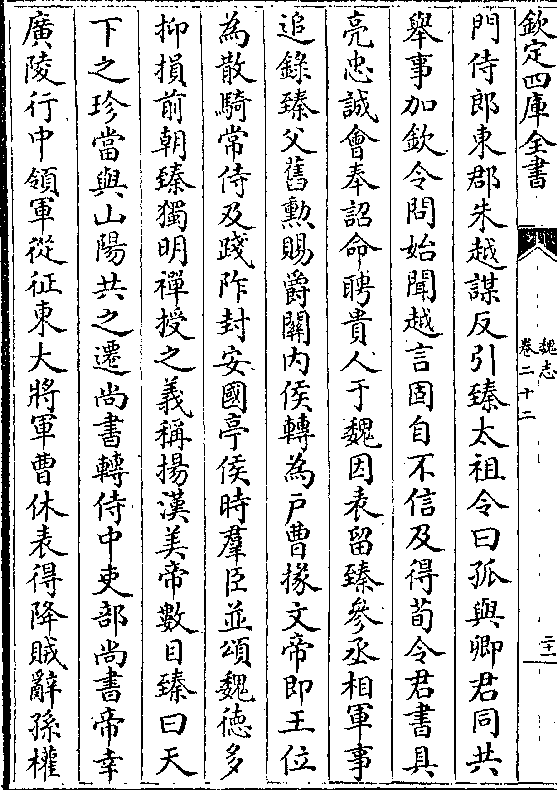 欽定四庫全書
魏志
卷二十二
二十一
門侍郎東郡朱越謀反引臻太祖令曰孤與卿君同共
舉事加欽令問始聞越言固自不信及得荀令君書具
亮忠誠會奉詔命聘貴人于魏因表留臻參丞相軍事
追錄臻父舊勲賜爵關内侯轉為戸曹掾文帝即王位
為散騎常侍及踐阼封安國亭侯時羣臣並頌魏徳多
抑損前朝臻獨明禪授之義稱揚漢美帝數目臻曰天
下之珍當與山陽共之遷尚書轉侍中吏部尚書帝幸
廣陵行中領軍從征東大將軍曹休表得降賊辭孫權